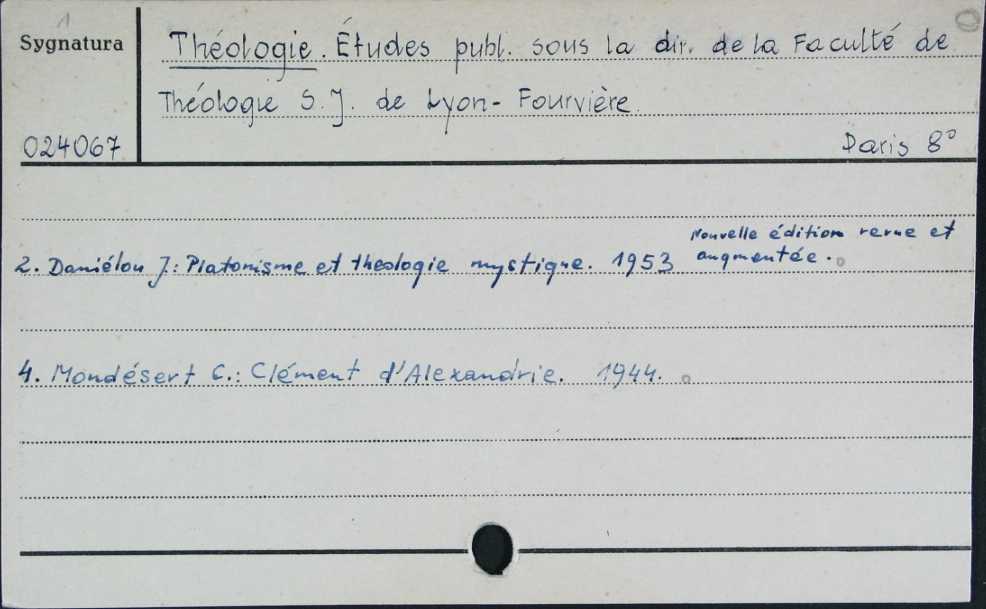 1
Sygnatura
Théologie. Études publ. sous la dir. de la Faculté de
Théologie S.J. de Lyon-Fourvière.
024067
Paris 8°
2. Daniélou J.: Platonisme et theologie mystique. 1953 Nouvelle édition revue et
augmentée.
4. Mondésert C.: Clément d'Alexandrie. 1944.